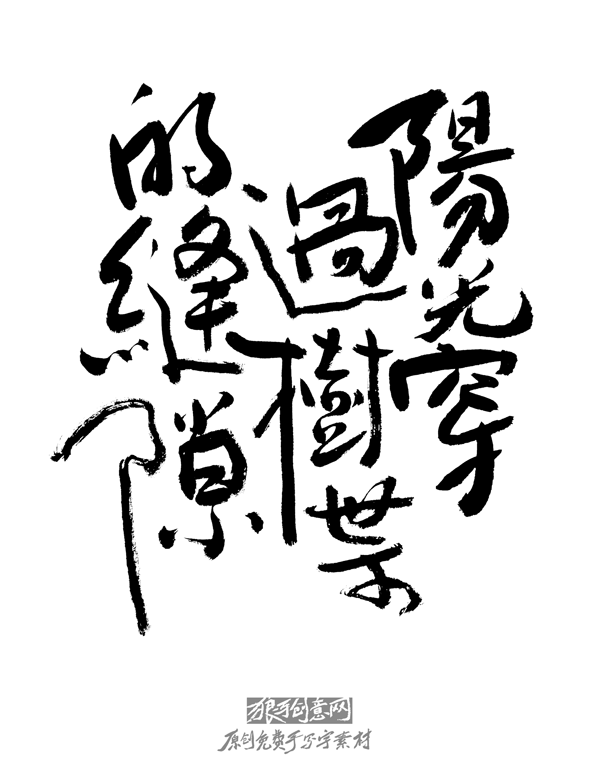 陽光穿
過樹葉
的縫隙
狼手创意网
原创免费手写字素材